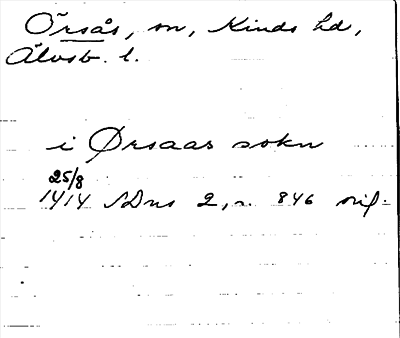 Örsås, sn, Kinds hd,
Älvsb. l.
i Ørsaas sokn
25/8
1414 SDns 2, s. 846 orig.